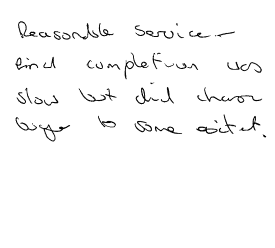 Reasonable service -
and completion was
slow but did
to some extent.